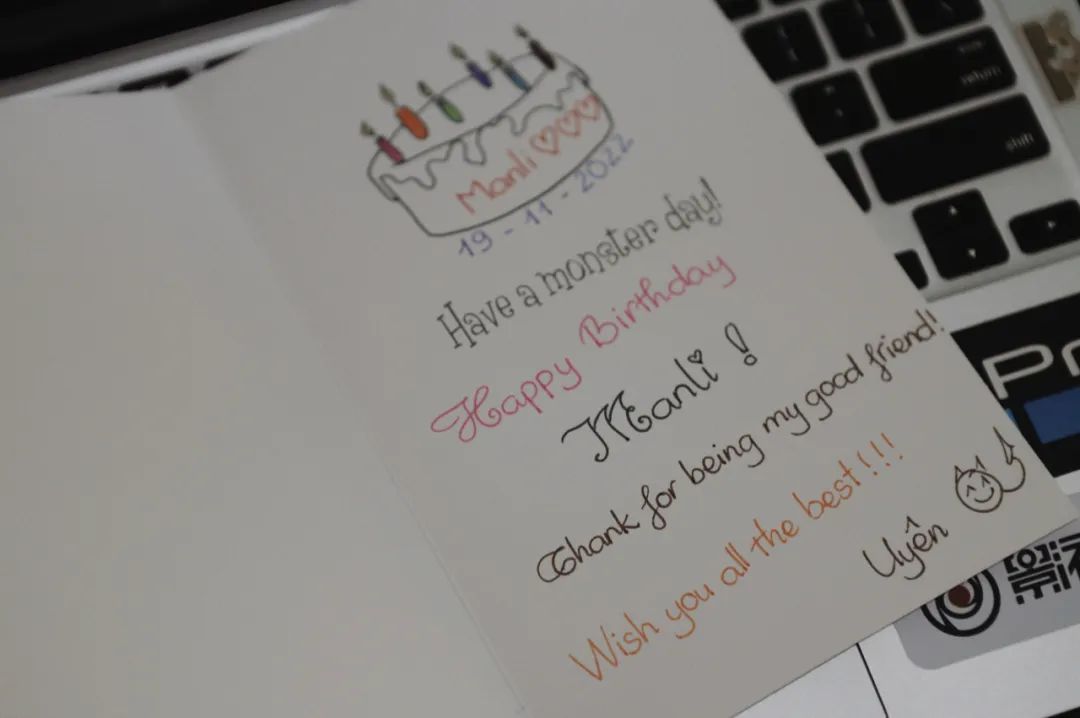 Manli ♡♡♡
19 - 11 - 2022
Have a monster day!
Happy Birthday
Manli !
Thank for being my good friend!
Wish you all the best!!!
Uyên
return
shift